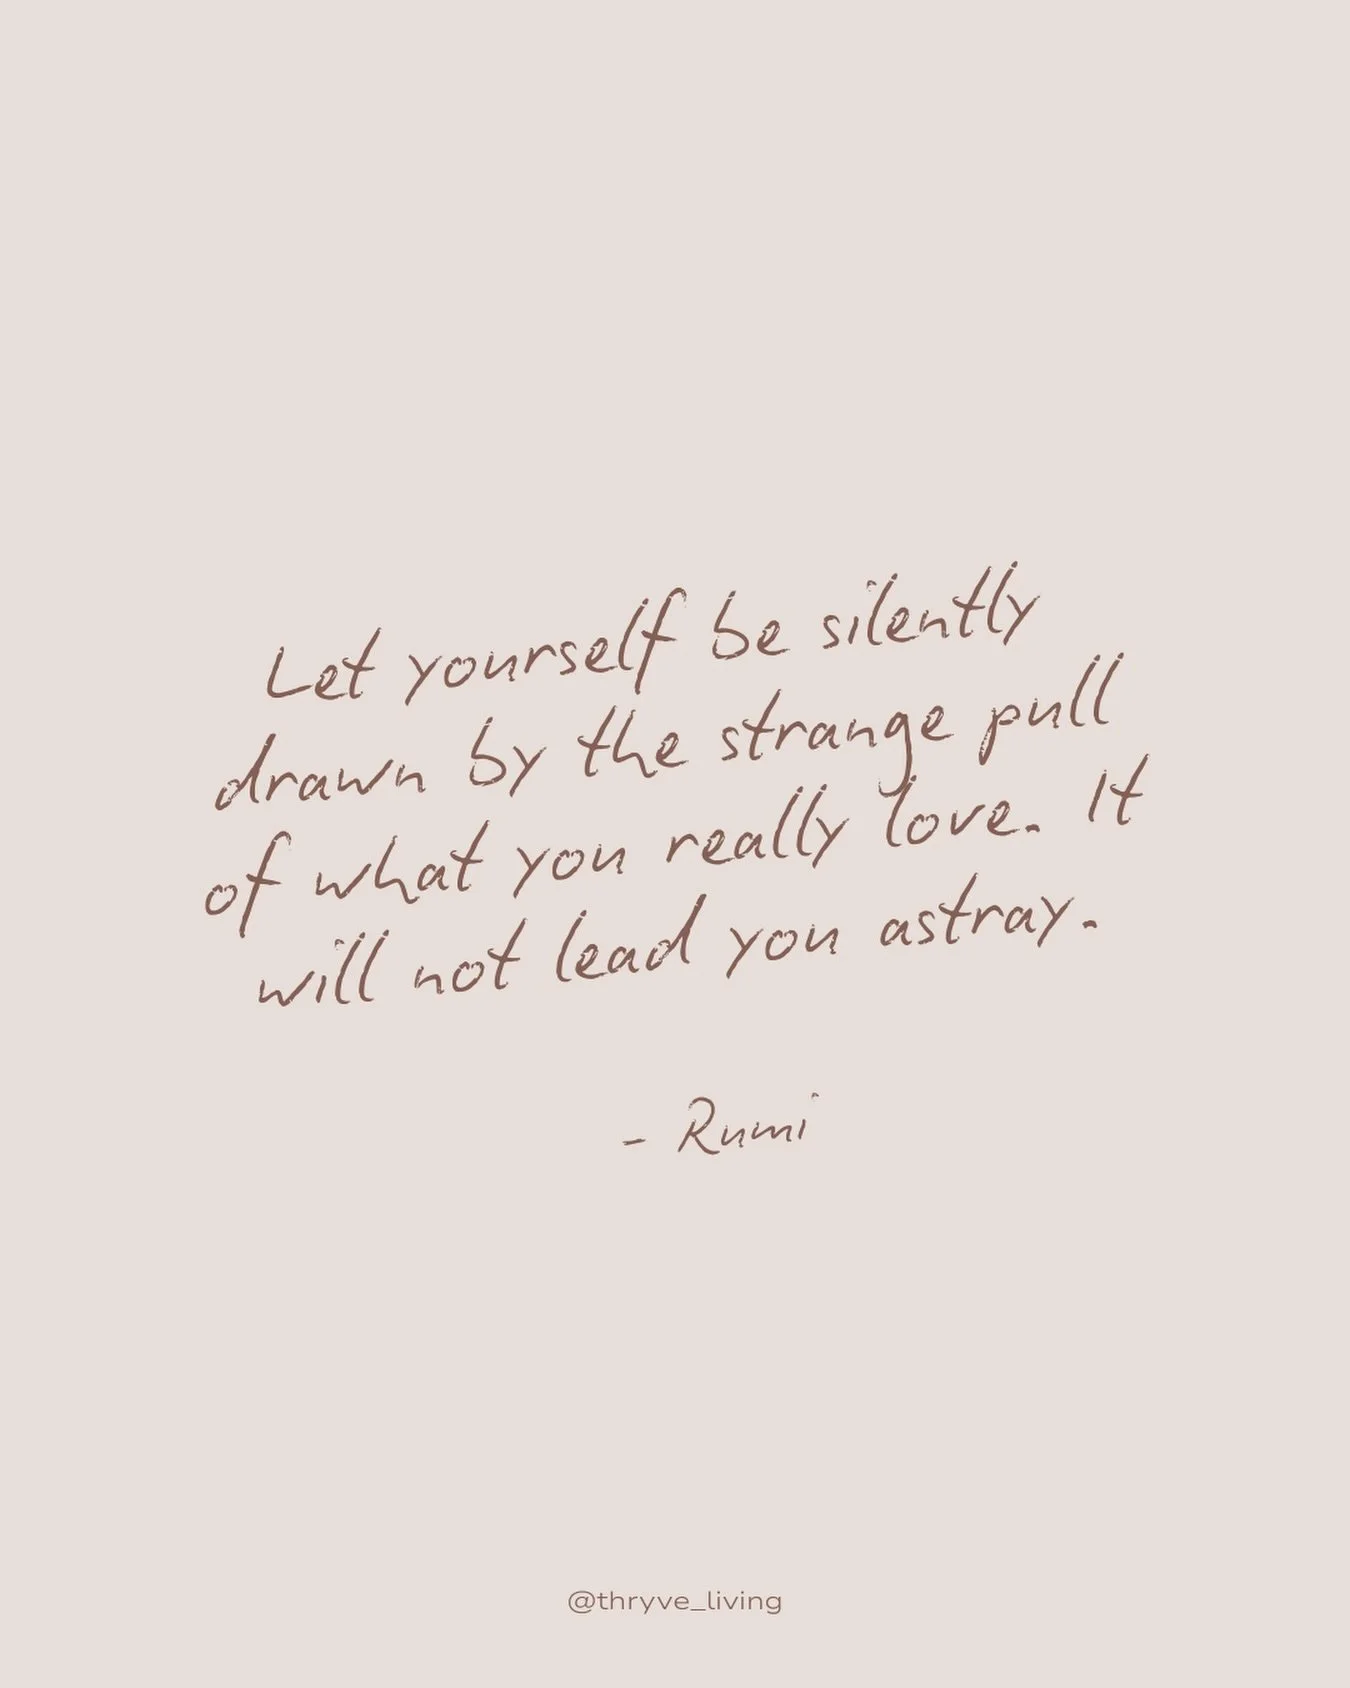 Let yourself be silently
drawn by the strange pull
of what you really love. It
will not lead you astray.
- Rumi
@thryve_living